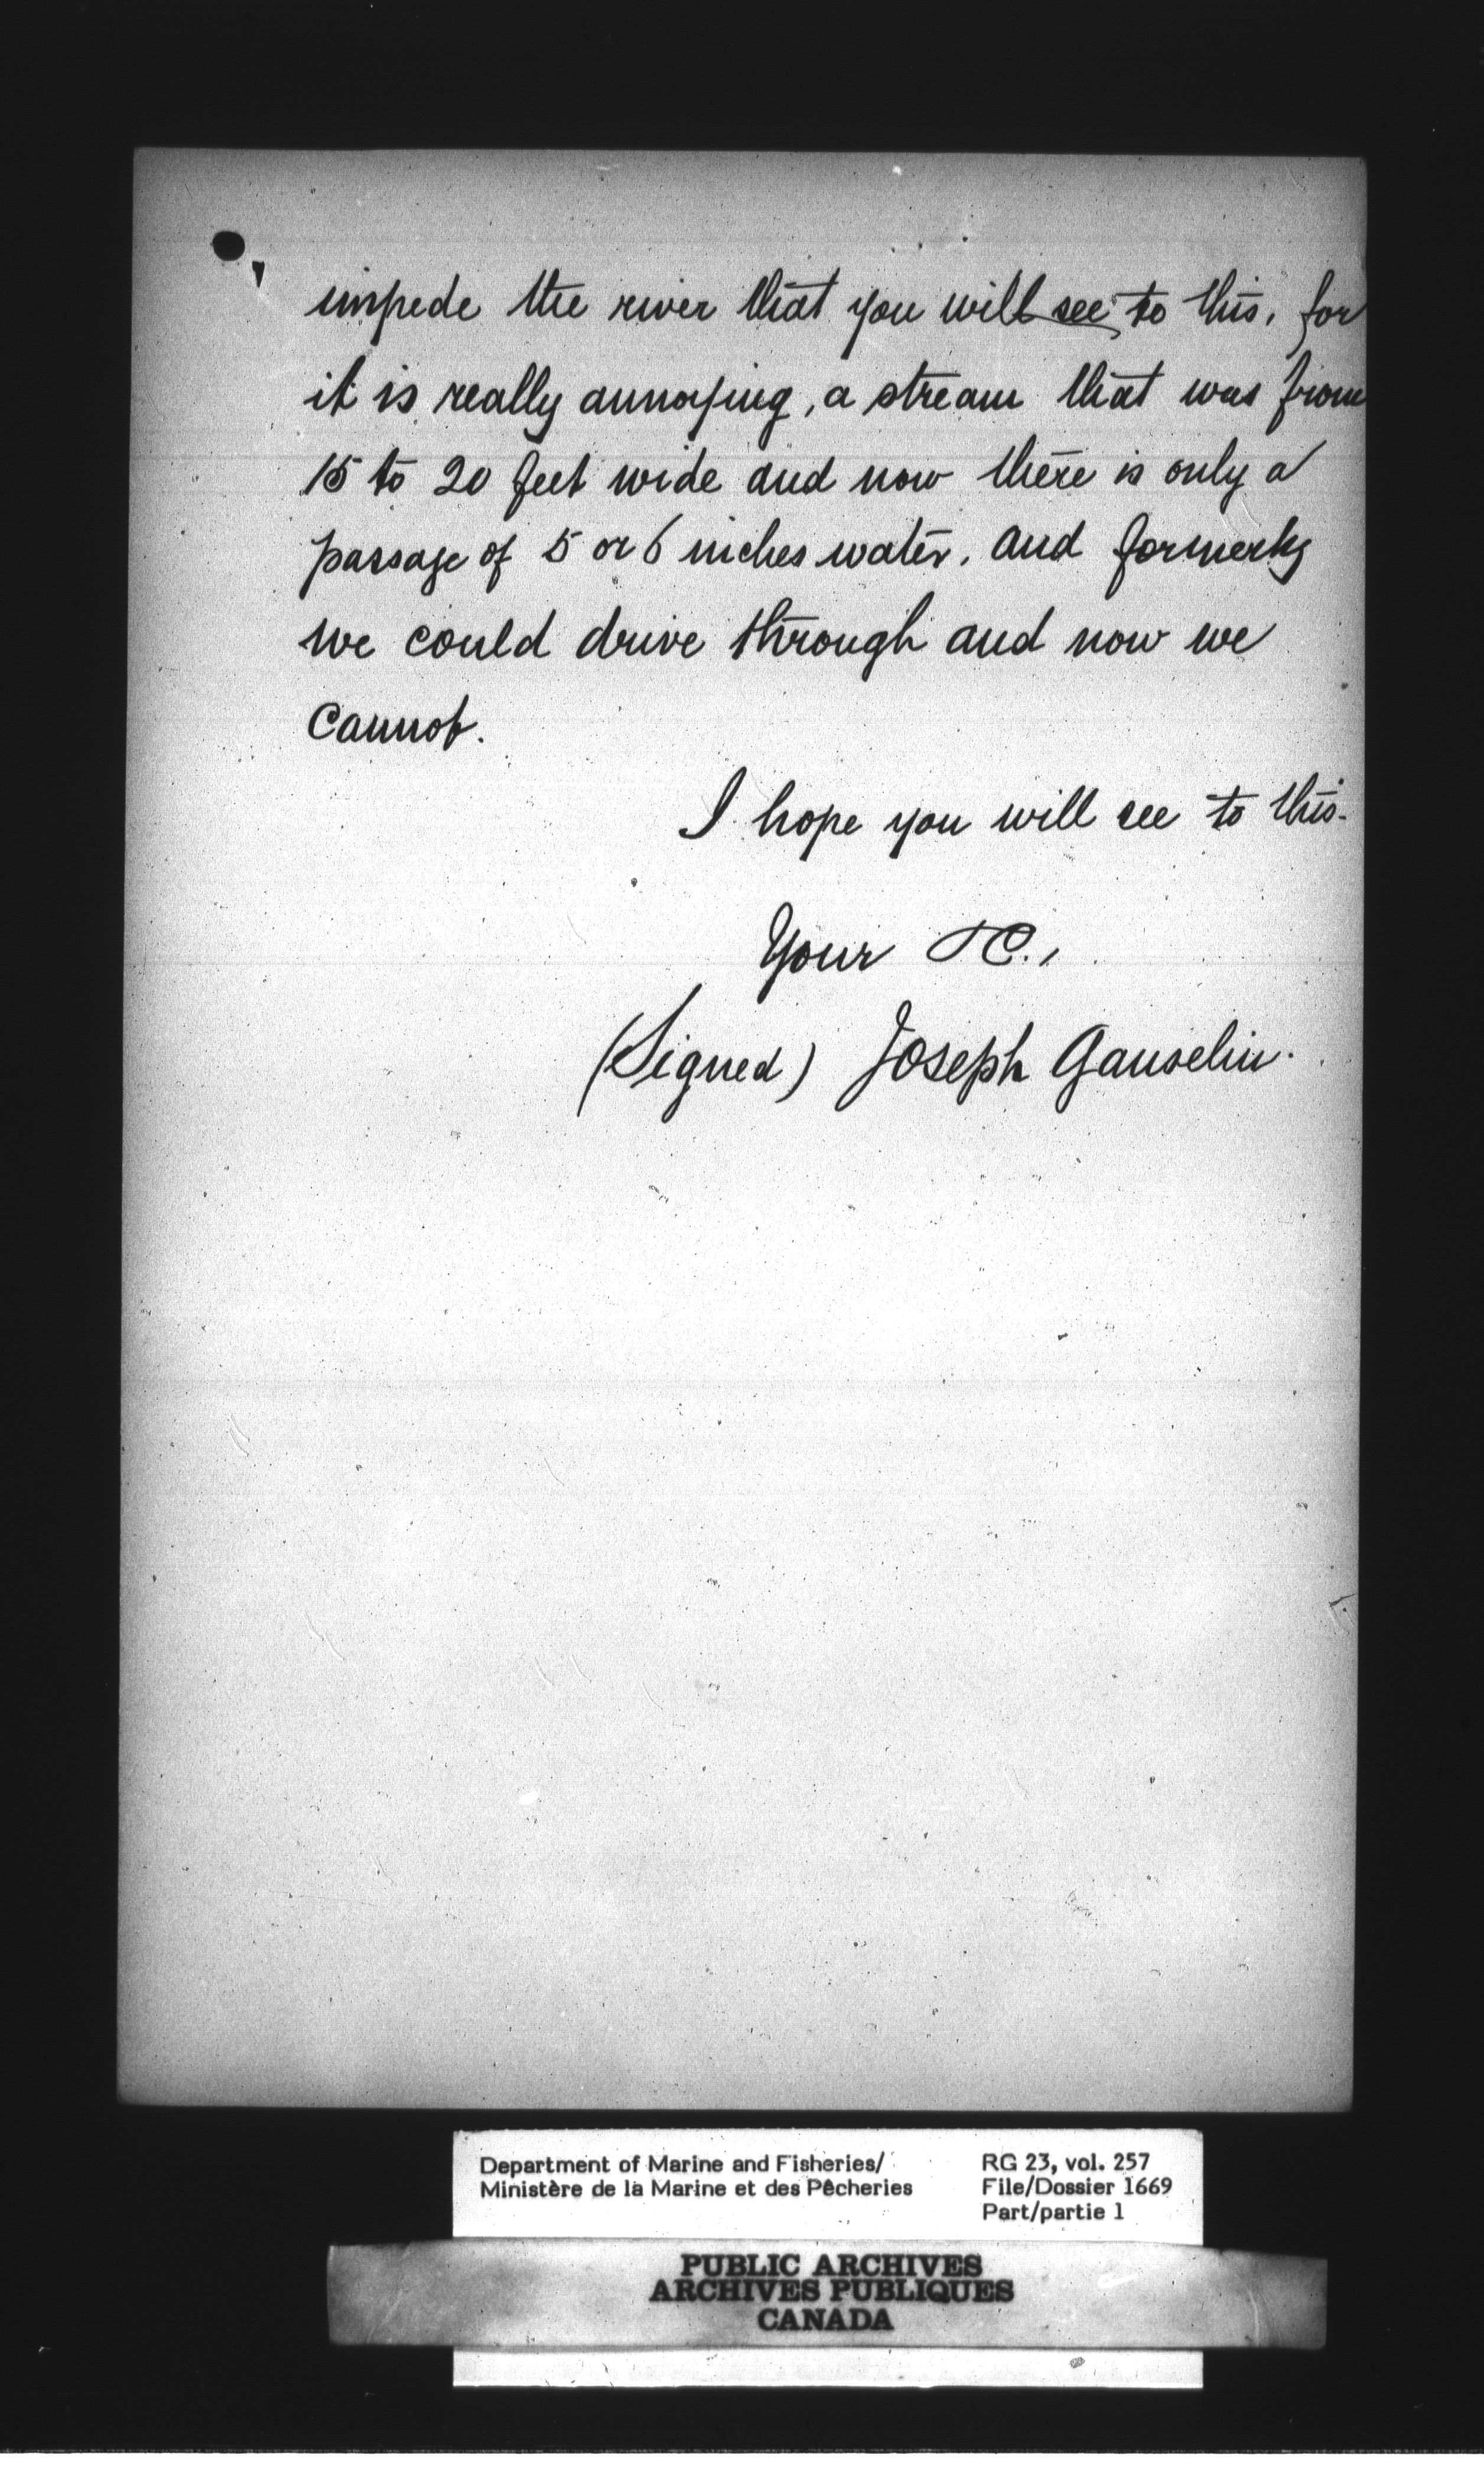 impede the river that you will see to this, for
it is really annoying, a stream that was from
15 to 20 feet wide and now there is only a
passage of 5 or 6 inches water, and formerly
we could drive through and now we
cannot.
I hope you will see to this.
Your &C.,
(Signed) Joseph Ganselin.
Department of Marine and Fisheries/
Ministère de la Marine et des Pêcheries
RG 23, vol. 257
File/Dossier 1669
Part/partie 1
PUBLIC ARCHIVES
ARCHIVES PUBLIQUES
CANADA